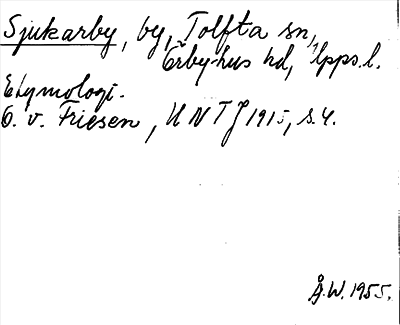 Sjukarby, by, Tolfta sn,
Örbyhus hd, Upps. l.
Etymologi.
O. v. Friesen, UNT J 1915, s. 4.
Å.W. 1955.